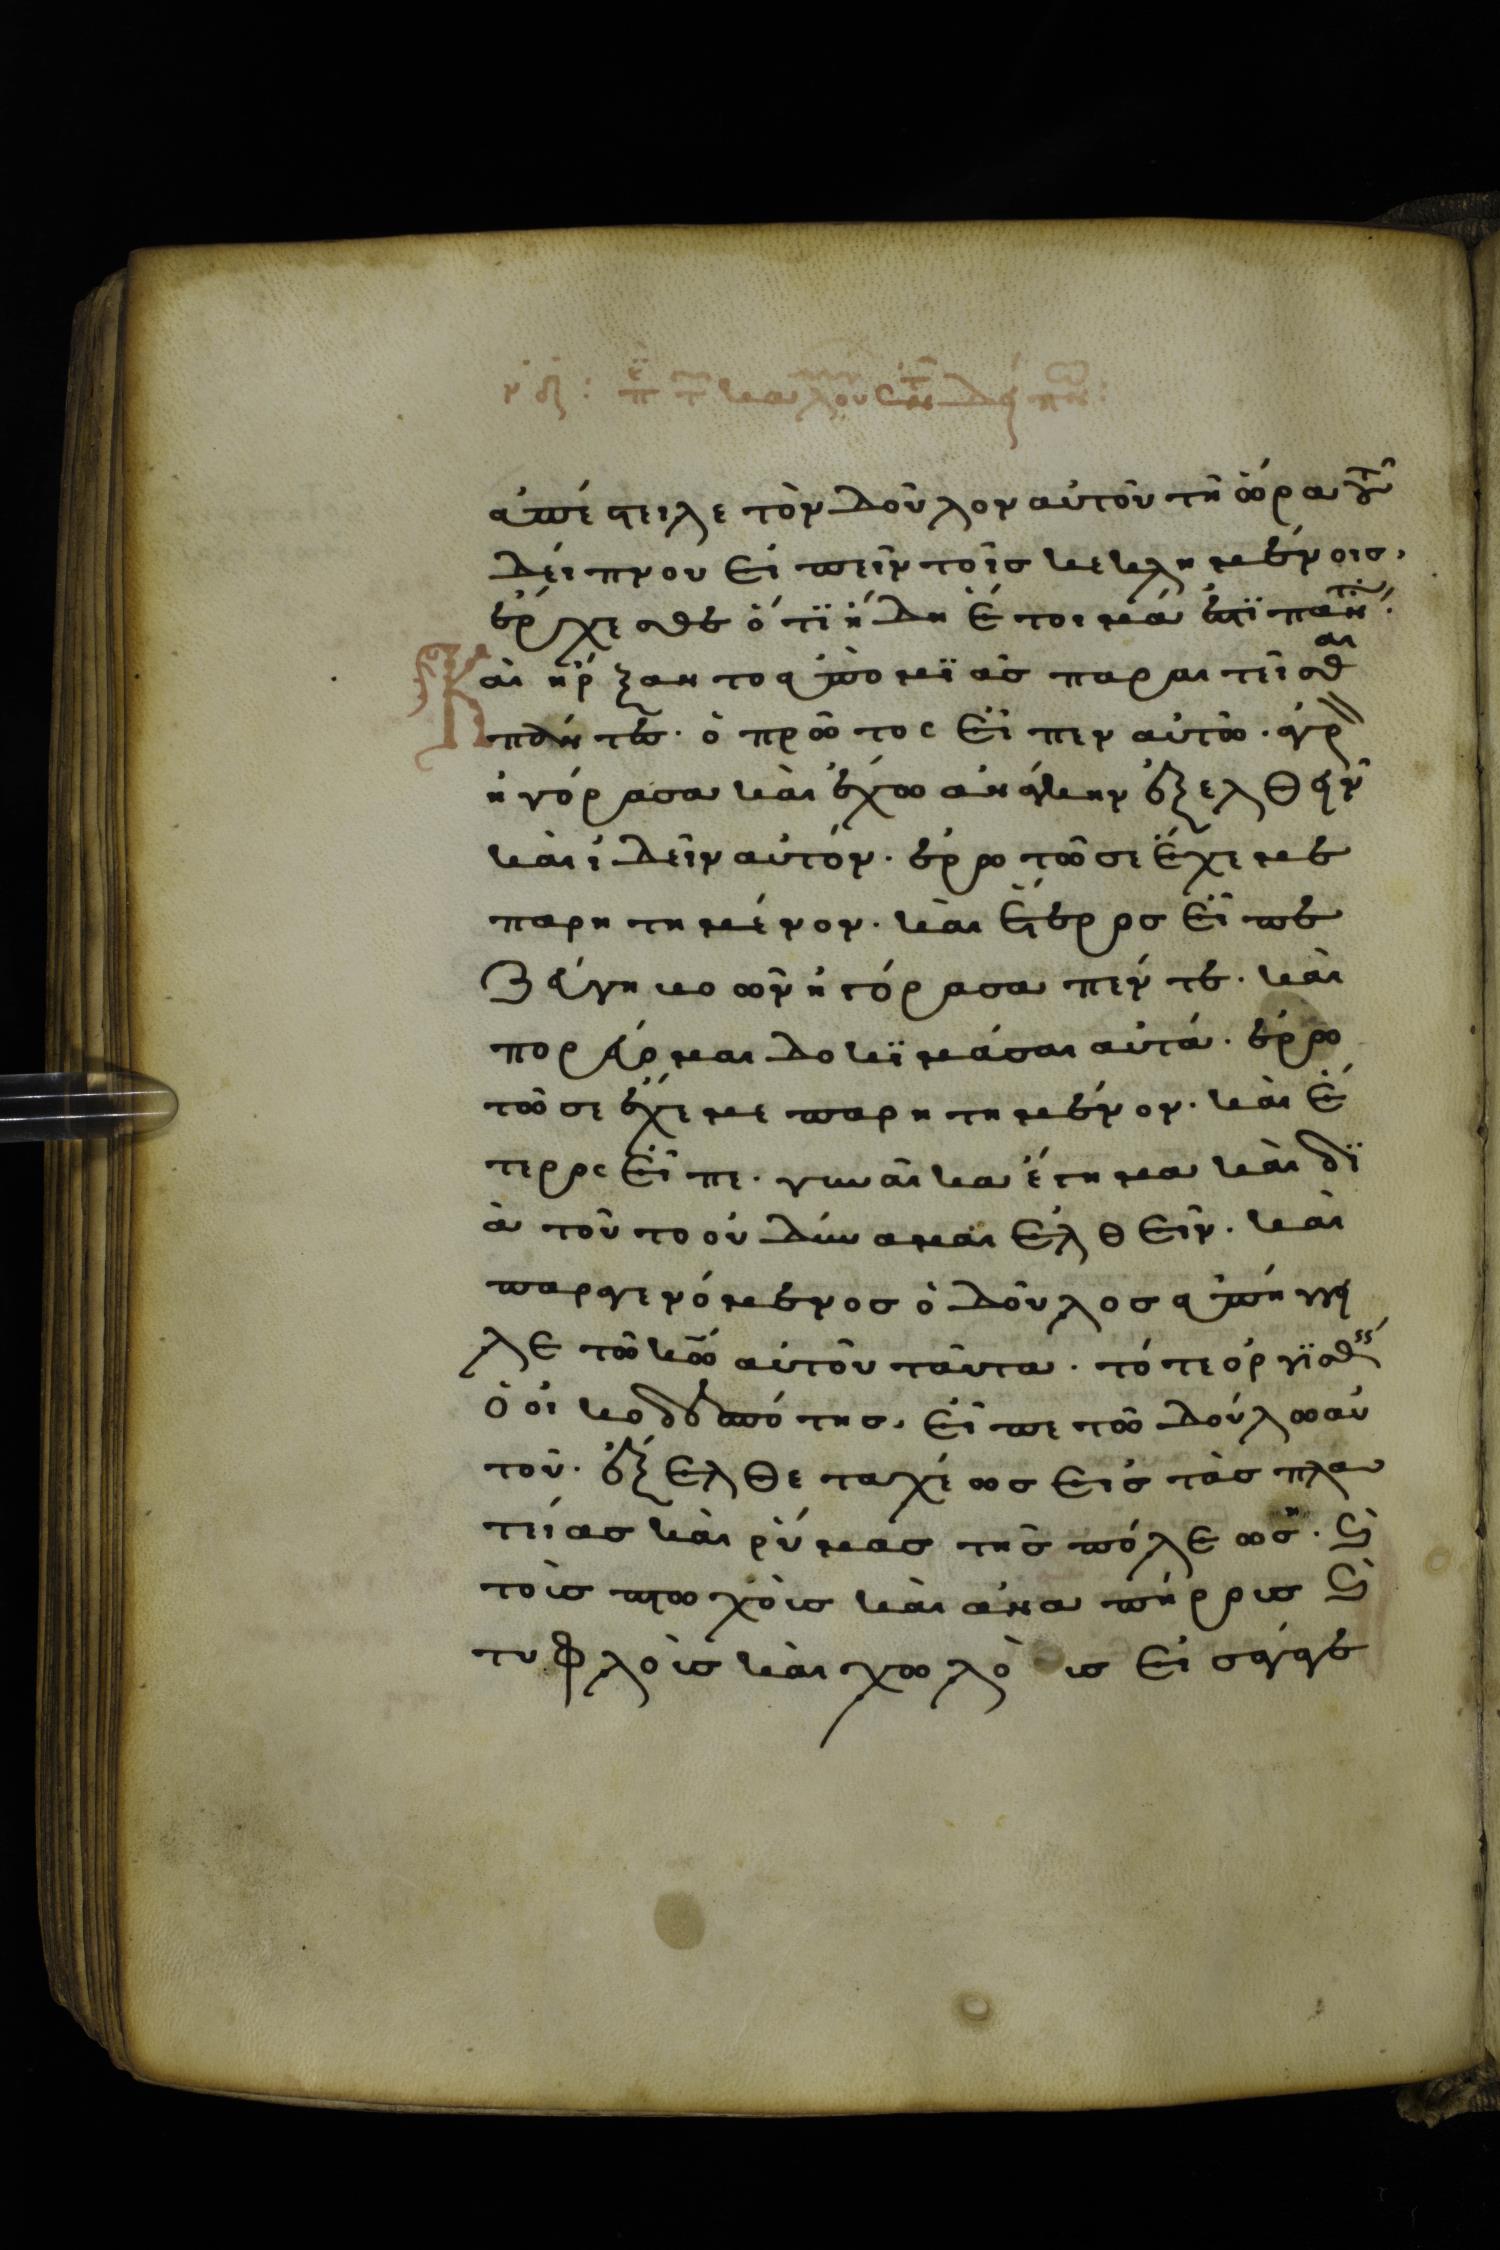 ἀπέστειλε τὸν δοῦλον αὐτοῦ τῆ ὥρα τοῦ
δείπνου εἰπεῖν τοῖς κεκλημένοις,
ἔρχεσθε ὅτϊ ἤδη ἕτοιμά ἐστϊ πάντα·
Καὶ ἤρξαντο ἀπὸ μϊᾶς παραιτεῖσθαι
πάντες· ὁ πρῶτος εἶπεν αὐτῶ· ἀγρ
ἠγόρασα καὶ ἔχω ἀνάγκην ἐξελθεῖν
καὶ ἰδεῖν αὐτόν· ἐρωτῶ σε ἔχε με
παρητημένον· καὶ ἕτερος εἶπε
ζεύγη βοῶν ἠγόρασα πέντε· καὶ
πορεύομαι δοκϊμάσαι αὐτά· ἐρω
τῶ σε ἔχε με παρητημένον· καὶ ἕ
τερος εἶπε· γυναῖκα ἔγημα καὶ δϊ
ὰ τοῦτο οὐ δύναμαι ἐλθεῖν· καὶ
παραγενόμενος ὁ δοῦλος ἀπήγγει
λε τῶ κῶ αὐτοῦ ταῦτα· τότε ὀργϊσθεὶς
ὁ οἰκοδεσπότης, εἶπε τῶ δούλω αὐ
τοῦ· ἔξελθε ταχέως εἰς τὰς πλα
τείας καὶ ῥύμας τῆς πόλεως· καὶ
τοὶς πτωχοὶς καὶ ἀναπήροις καὶ
τυφλοὶς καὶ χωλοὶς εἰσάγαγε